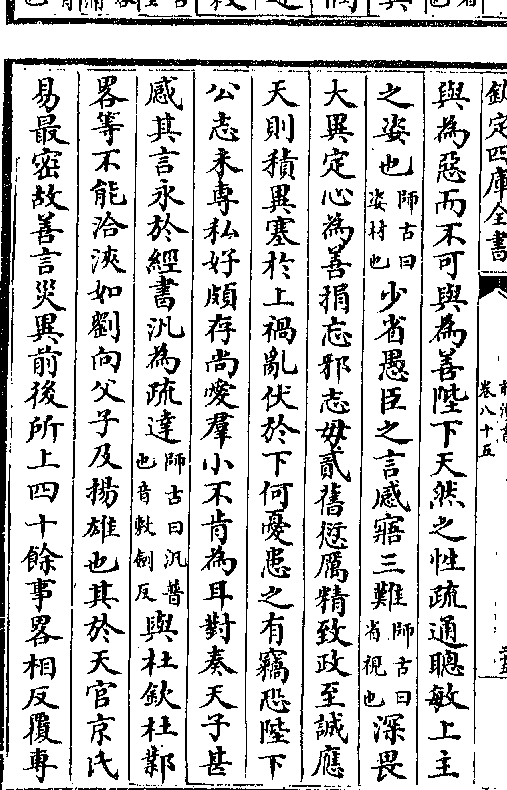 欽定四庫全書
卷八十五
與為惡而不可與為善陛下天然之性疏通聰敏上主
之姿也師古曰姿材也少省愚臣之言感寤三難師古曰省視也深畏
大異定心為善捐忘邪志毋貳舊愆厲精致政至誠應
天則積異塞於上禍亂伏於下何憂患之有竊恐陛下
公志未專私好頗存尚愛羣小不肯為耳對奏天子甚
感其言永於經書汎為疏達師古曰汎普也音敷劍反與杜欽杜鄴
畧等不能洽浹如劉向父子及揚雄也其於天官京氏
易最密故善言災異前後所上四十餘事畧相反覆專